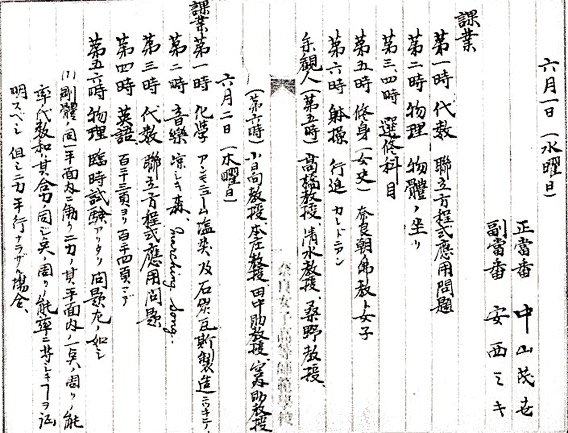 六月一日 (水曜日)
正當番 中山茂世
副當番 安西ミキ
課業
第一時 代数 聯立方程式應用問題
第二時 物理 物體ノ坐リ
第三、四時 選修科目
第五時 修身(女史) 奈良朝ノ佛教ト女子
第六時 躰操 行進 カドリラン
参観人(第五時) 髙橋教授 清水教授 桑野教授
(第六時) 小日向教授 本庄教授 田中助教授 助教授
六月二日 (水曜日)
課業
第一時 化学 アンモニユーム塩类及石炭瓦斯製造ニツキテ
第二時 音樂 涼シキ森、 Marching Song.
第三時 代数 聯立方程式應用問題
第四時 英語 百十三頁ヨリ百十四頁マデ
第五、六時 物理 臨時試驗アリタリ 問題左ノ如シ
(1) 剛體ノ同一平面内ニ働ク二力ノ其平面内ノ一点ノ周リノ能
率代数和ハ其合力ノ同ジ点ノ周リノ能率ニ等シキコヲ証
明スベシ 但シ二力平行ナラザル場合
奈良女子高等師範學校